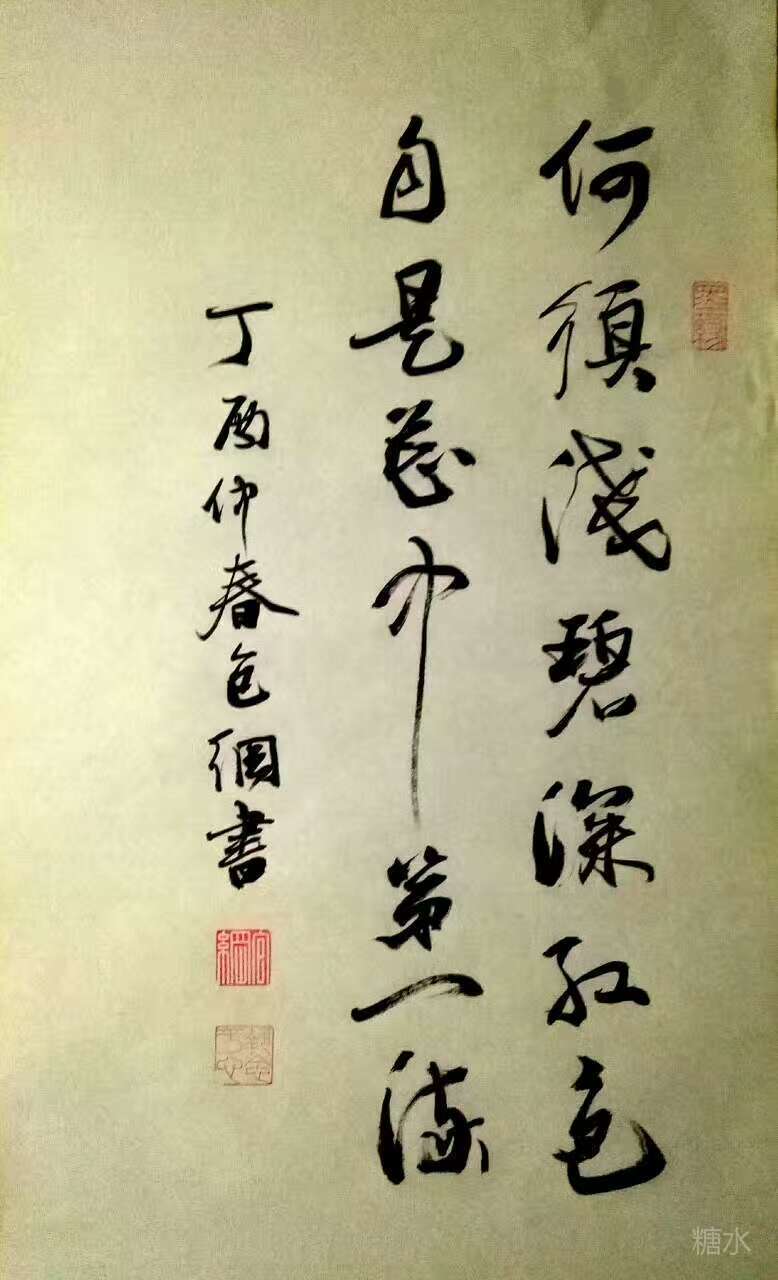 何須淺碧深紅色
自是花中第一流
丁酉仲春包綱書
糖水